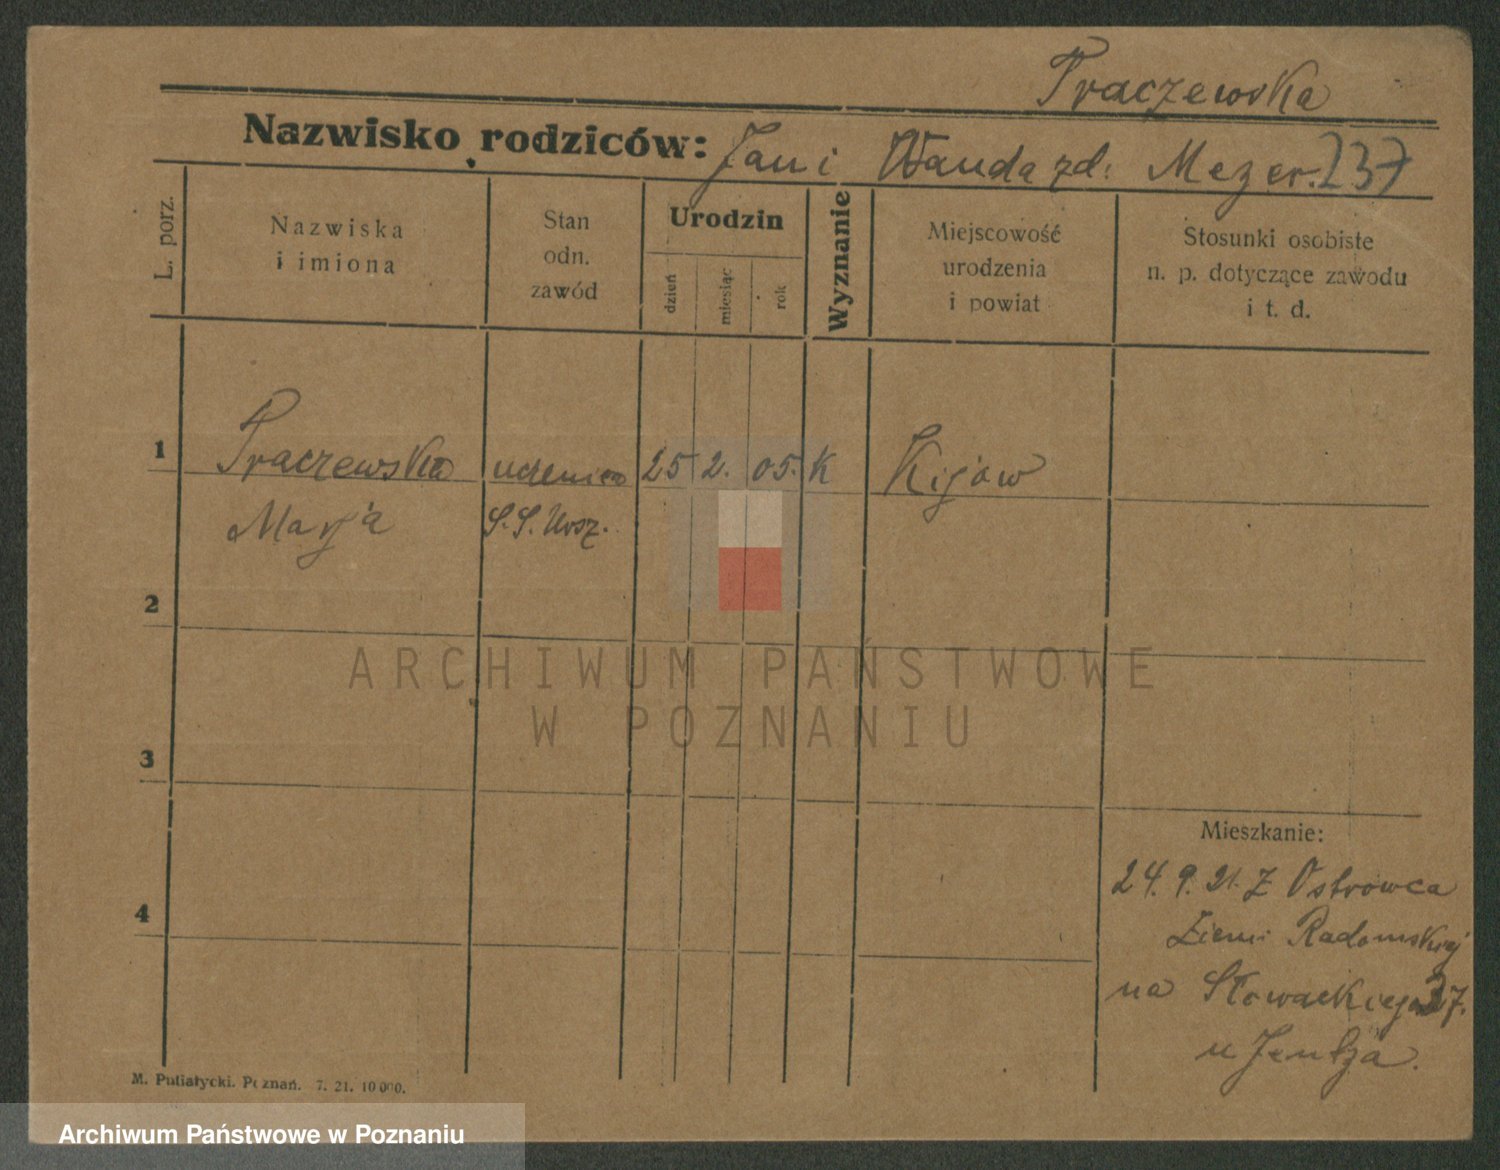 Praczewska
Nazwisko rodziców: Jan i Wanda zd. Mezer. 237
L. porz.
Nazwiska
i imiona
Stan
odn.
zawód
Urodzin
dzień
miesiąc
rok
Wyznanie
Miejscowość
urodzenia
i powiat
Stosunki osobiste
n. p. dotyczące zawodu
i t. d.
1 Praczewska uczenica 25 2. 05. K Kijow
Marja S.S. Ursz.
2
ARCHIWUM PAŃSTWOWE
W POZNANIU
3
Mieszkanie:
24. 9. 21. Z Ostrowca
4
Ziemi Radomskiej
na Słowackiego 37.
u
M. Putiatycki. Poznań. 7. 21. 10000.
Archiwum Państwowe w Poznaniu